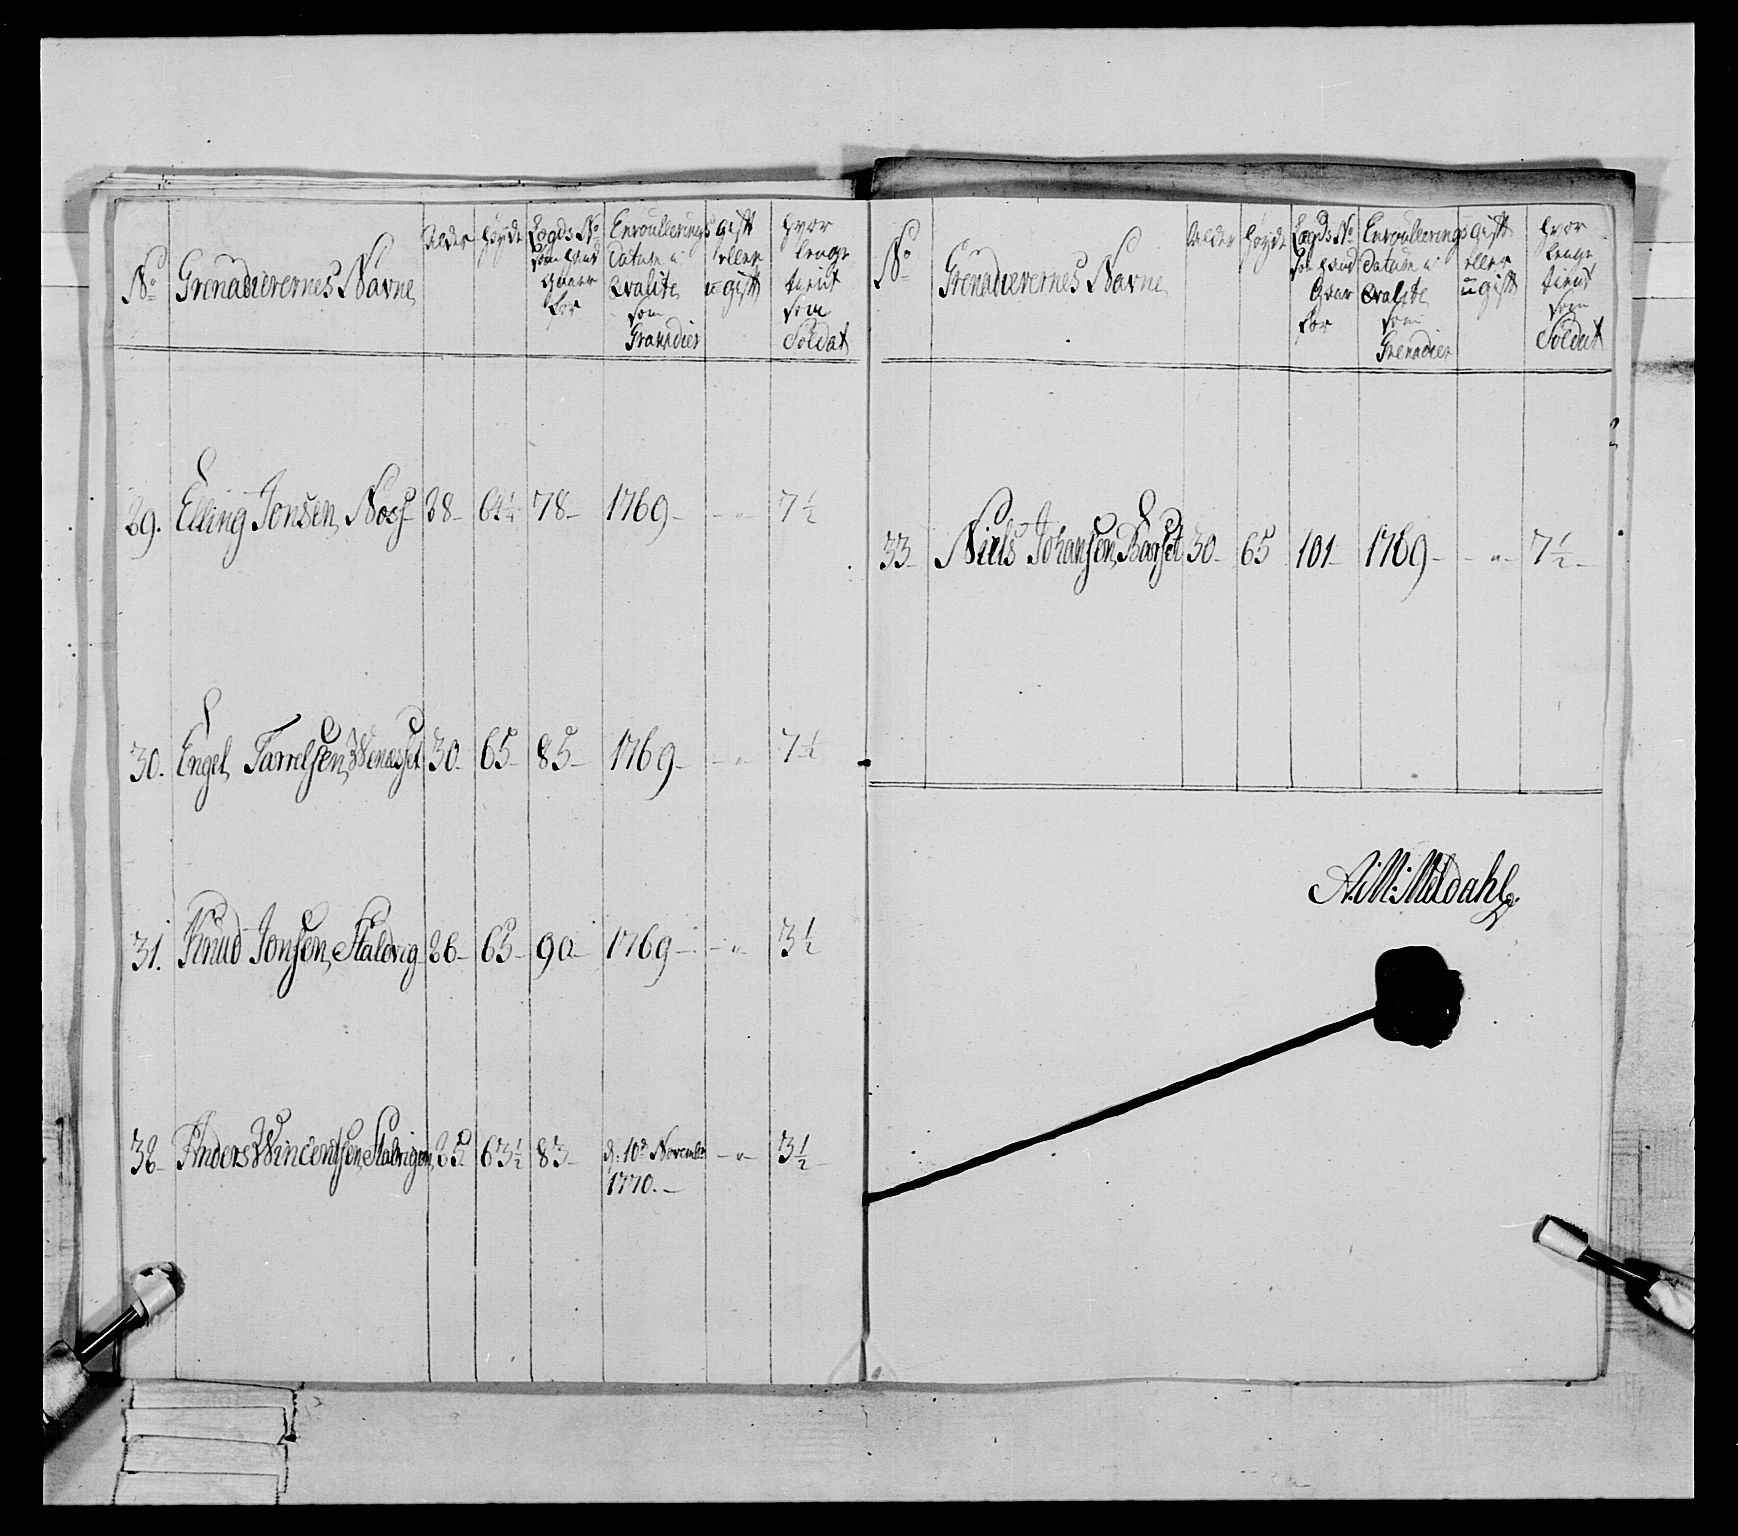 No Grenadierernes Navne Alder Høyde Lægds No som hand staaer for Enroullerings Datum u: Qvalite som Granadier gift eller u-gift hvor lenge tient som Soldat
29. Elling Jonsen, Noss 28 64 1/4 78 1769 - " - 7 1/2
30. Engel, Tarrelsen, Wenasset 30 65 85 1769 - " - 7 1/2
31. Knud Jonsen, Staldvig 26 65 90 1769 - " - 3 1/2
32 Anders Wincentsen, Stalvigen, 25 63 1/2 83 d: 10d November 1770. - " - 3 1/2
No Grenadierernes Navne Alder Høyde Lægds No som hand staar for Enroullerings Datum u: Qvalite som Grenadier gift eller u-gift hvor lenge tient som Soldat
33 Niels Johansen, Barset 30 65 101 1769 - " - 7 1/2
A: M: Meldahl.